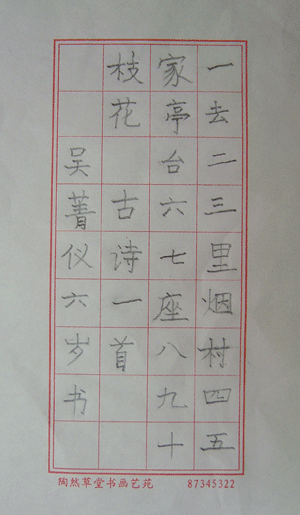 一去二三里烟村四五
家亭台六七座八九十
枝花 古诗一首
吴菁仪六岁书
陶然草堂书画艺苑 87345322